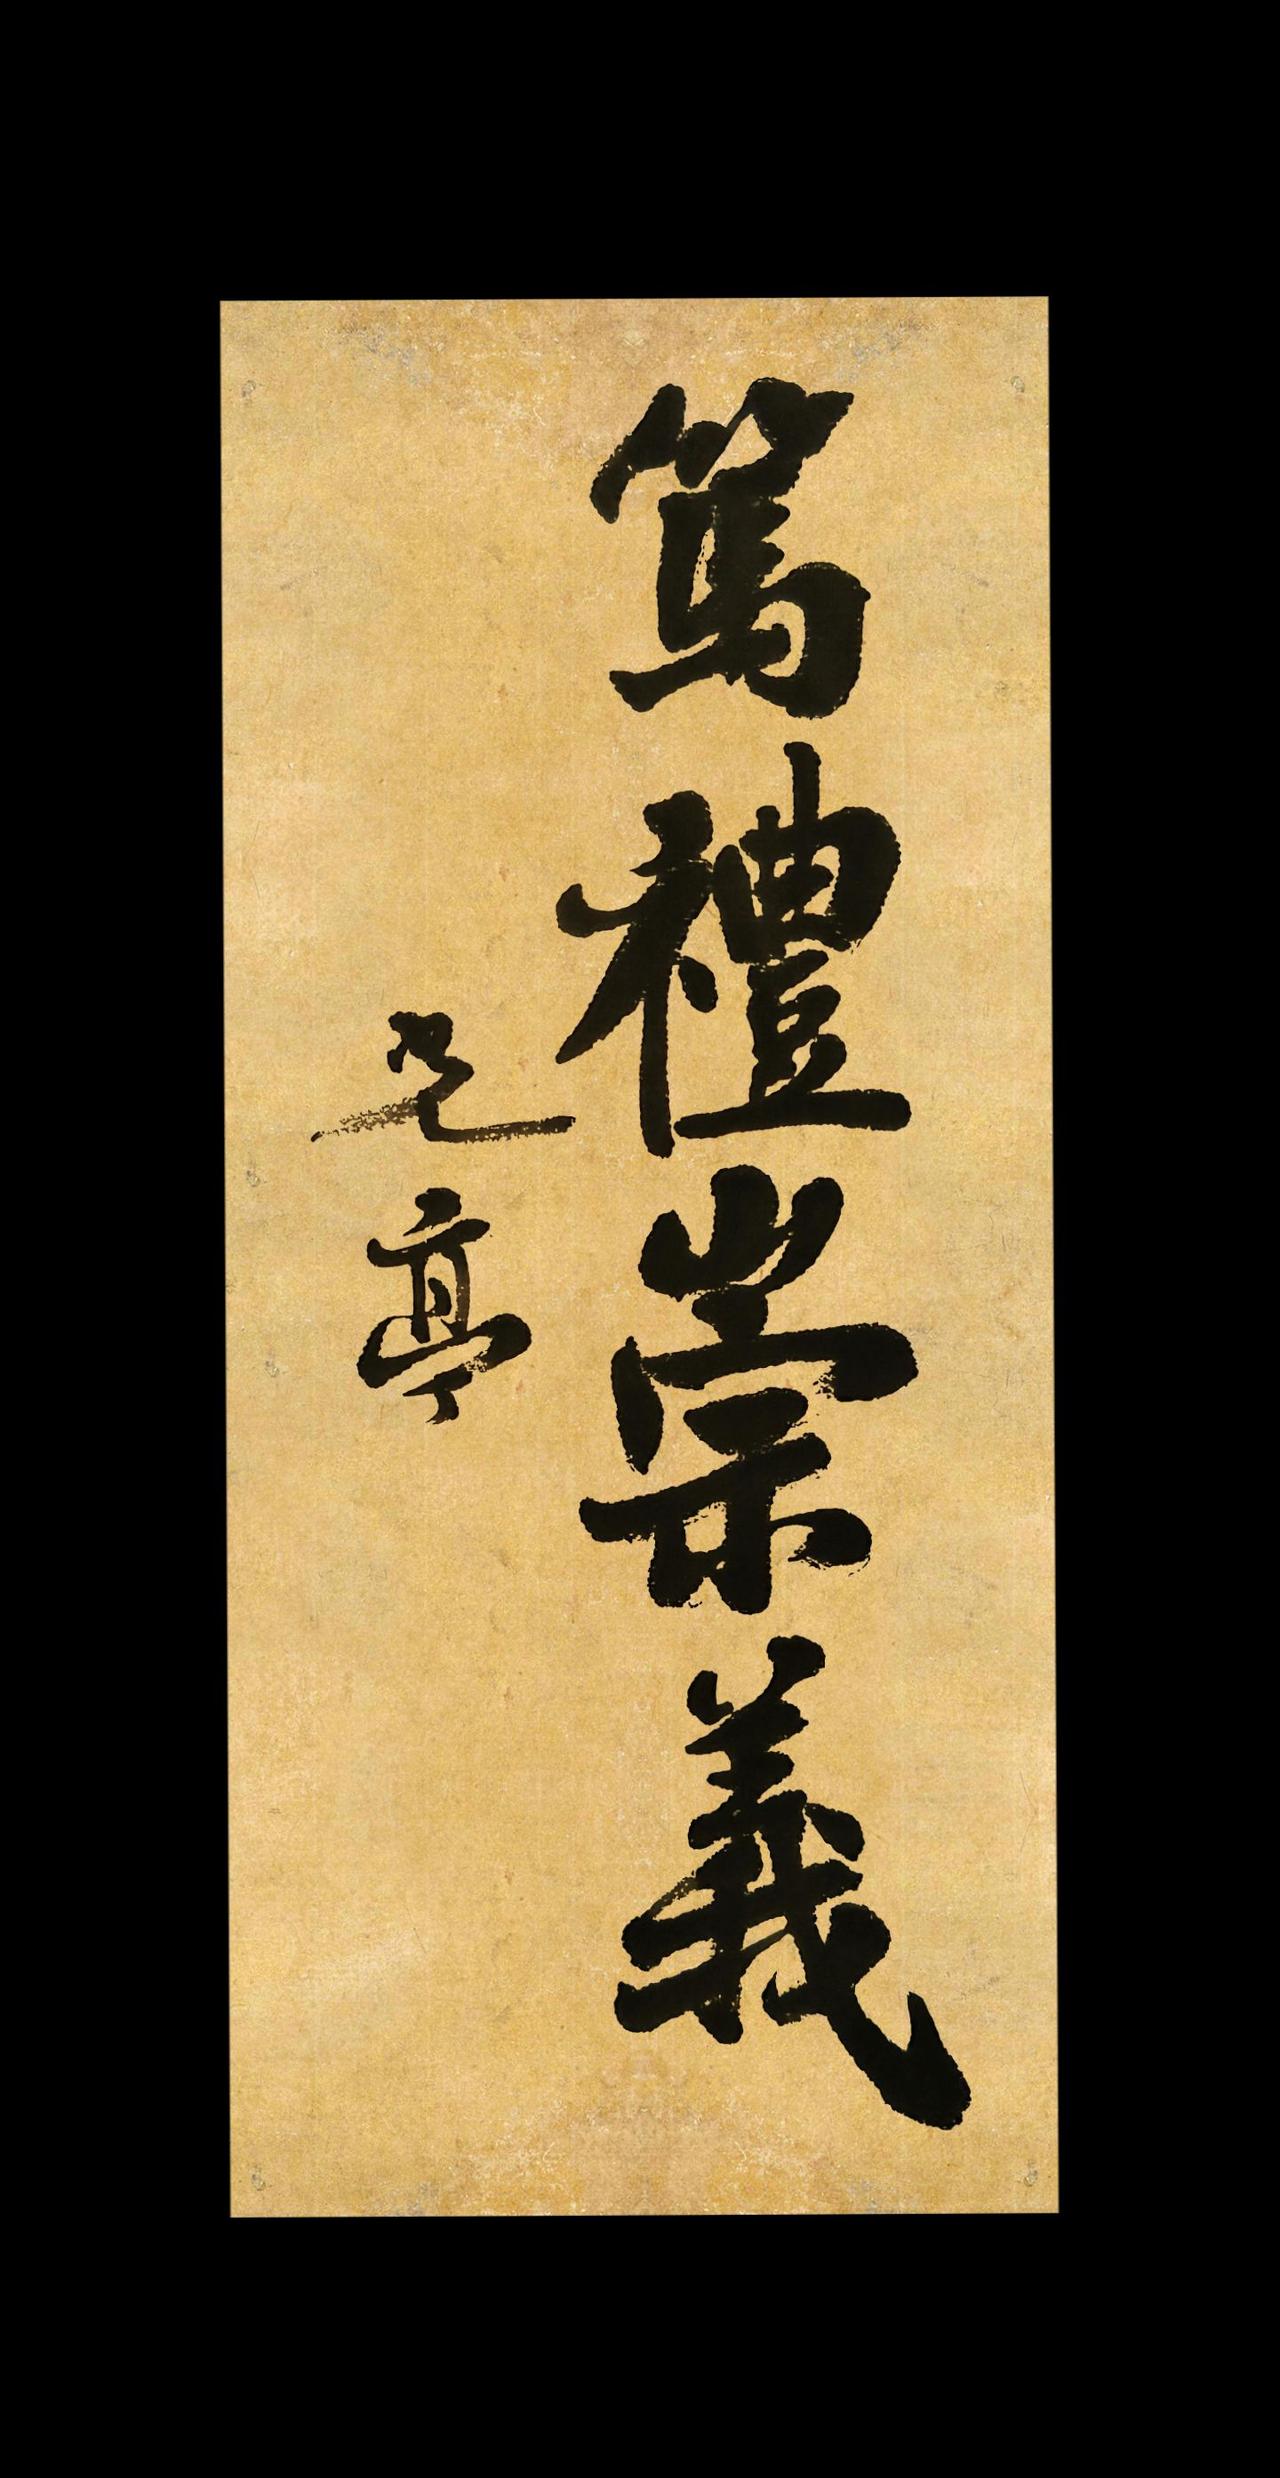 篤禮崇義
亭